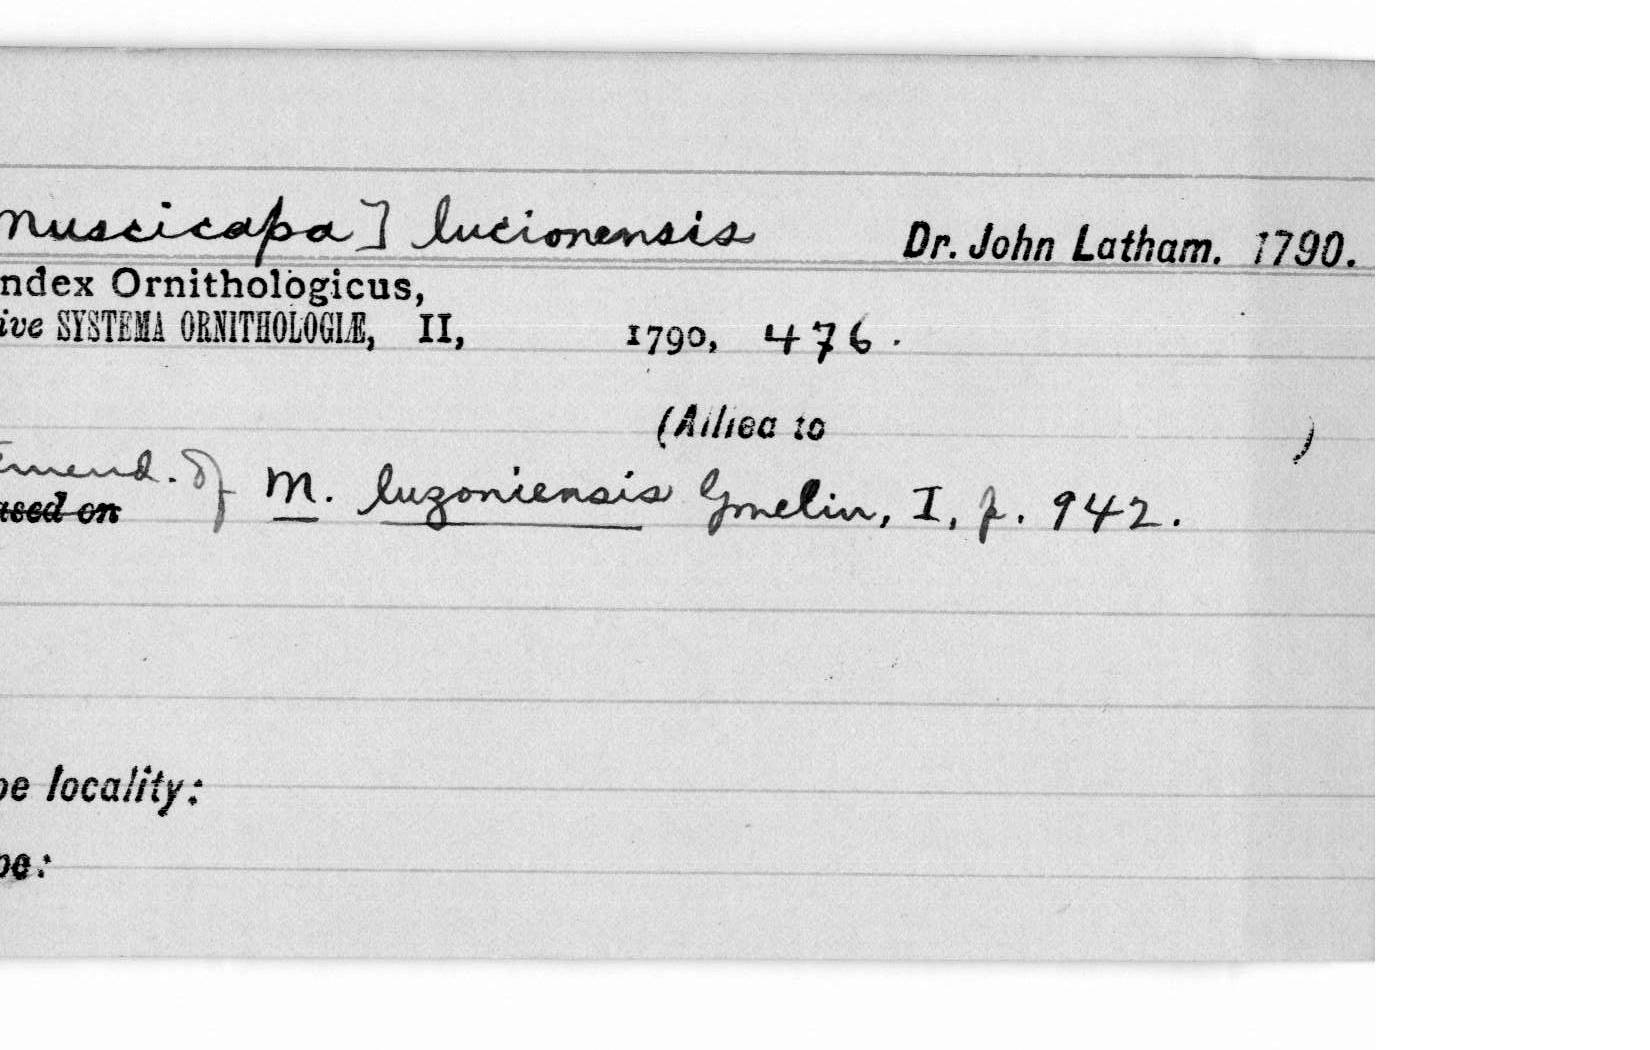 Muscicapa] lucionensis Dr. John Latham. 1790.
ndex Ornithologicus,
ive SYSTEMA ORNITHOLOGIÆ, II, 1790, 476.
(Allied to )
Emend. of M. luzoniensis Gmelin, I, p. 942.
ased on
pe locality:
pe: